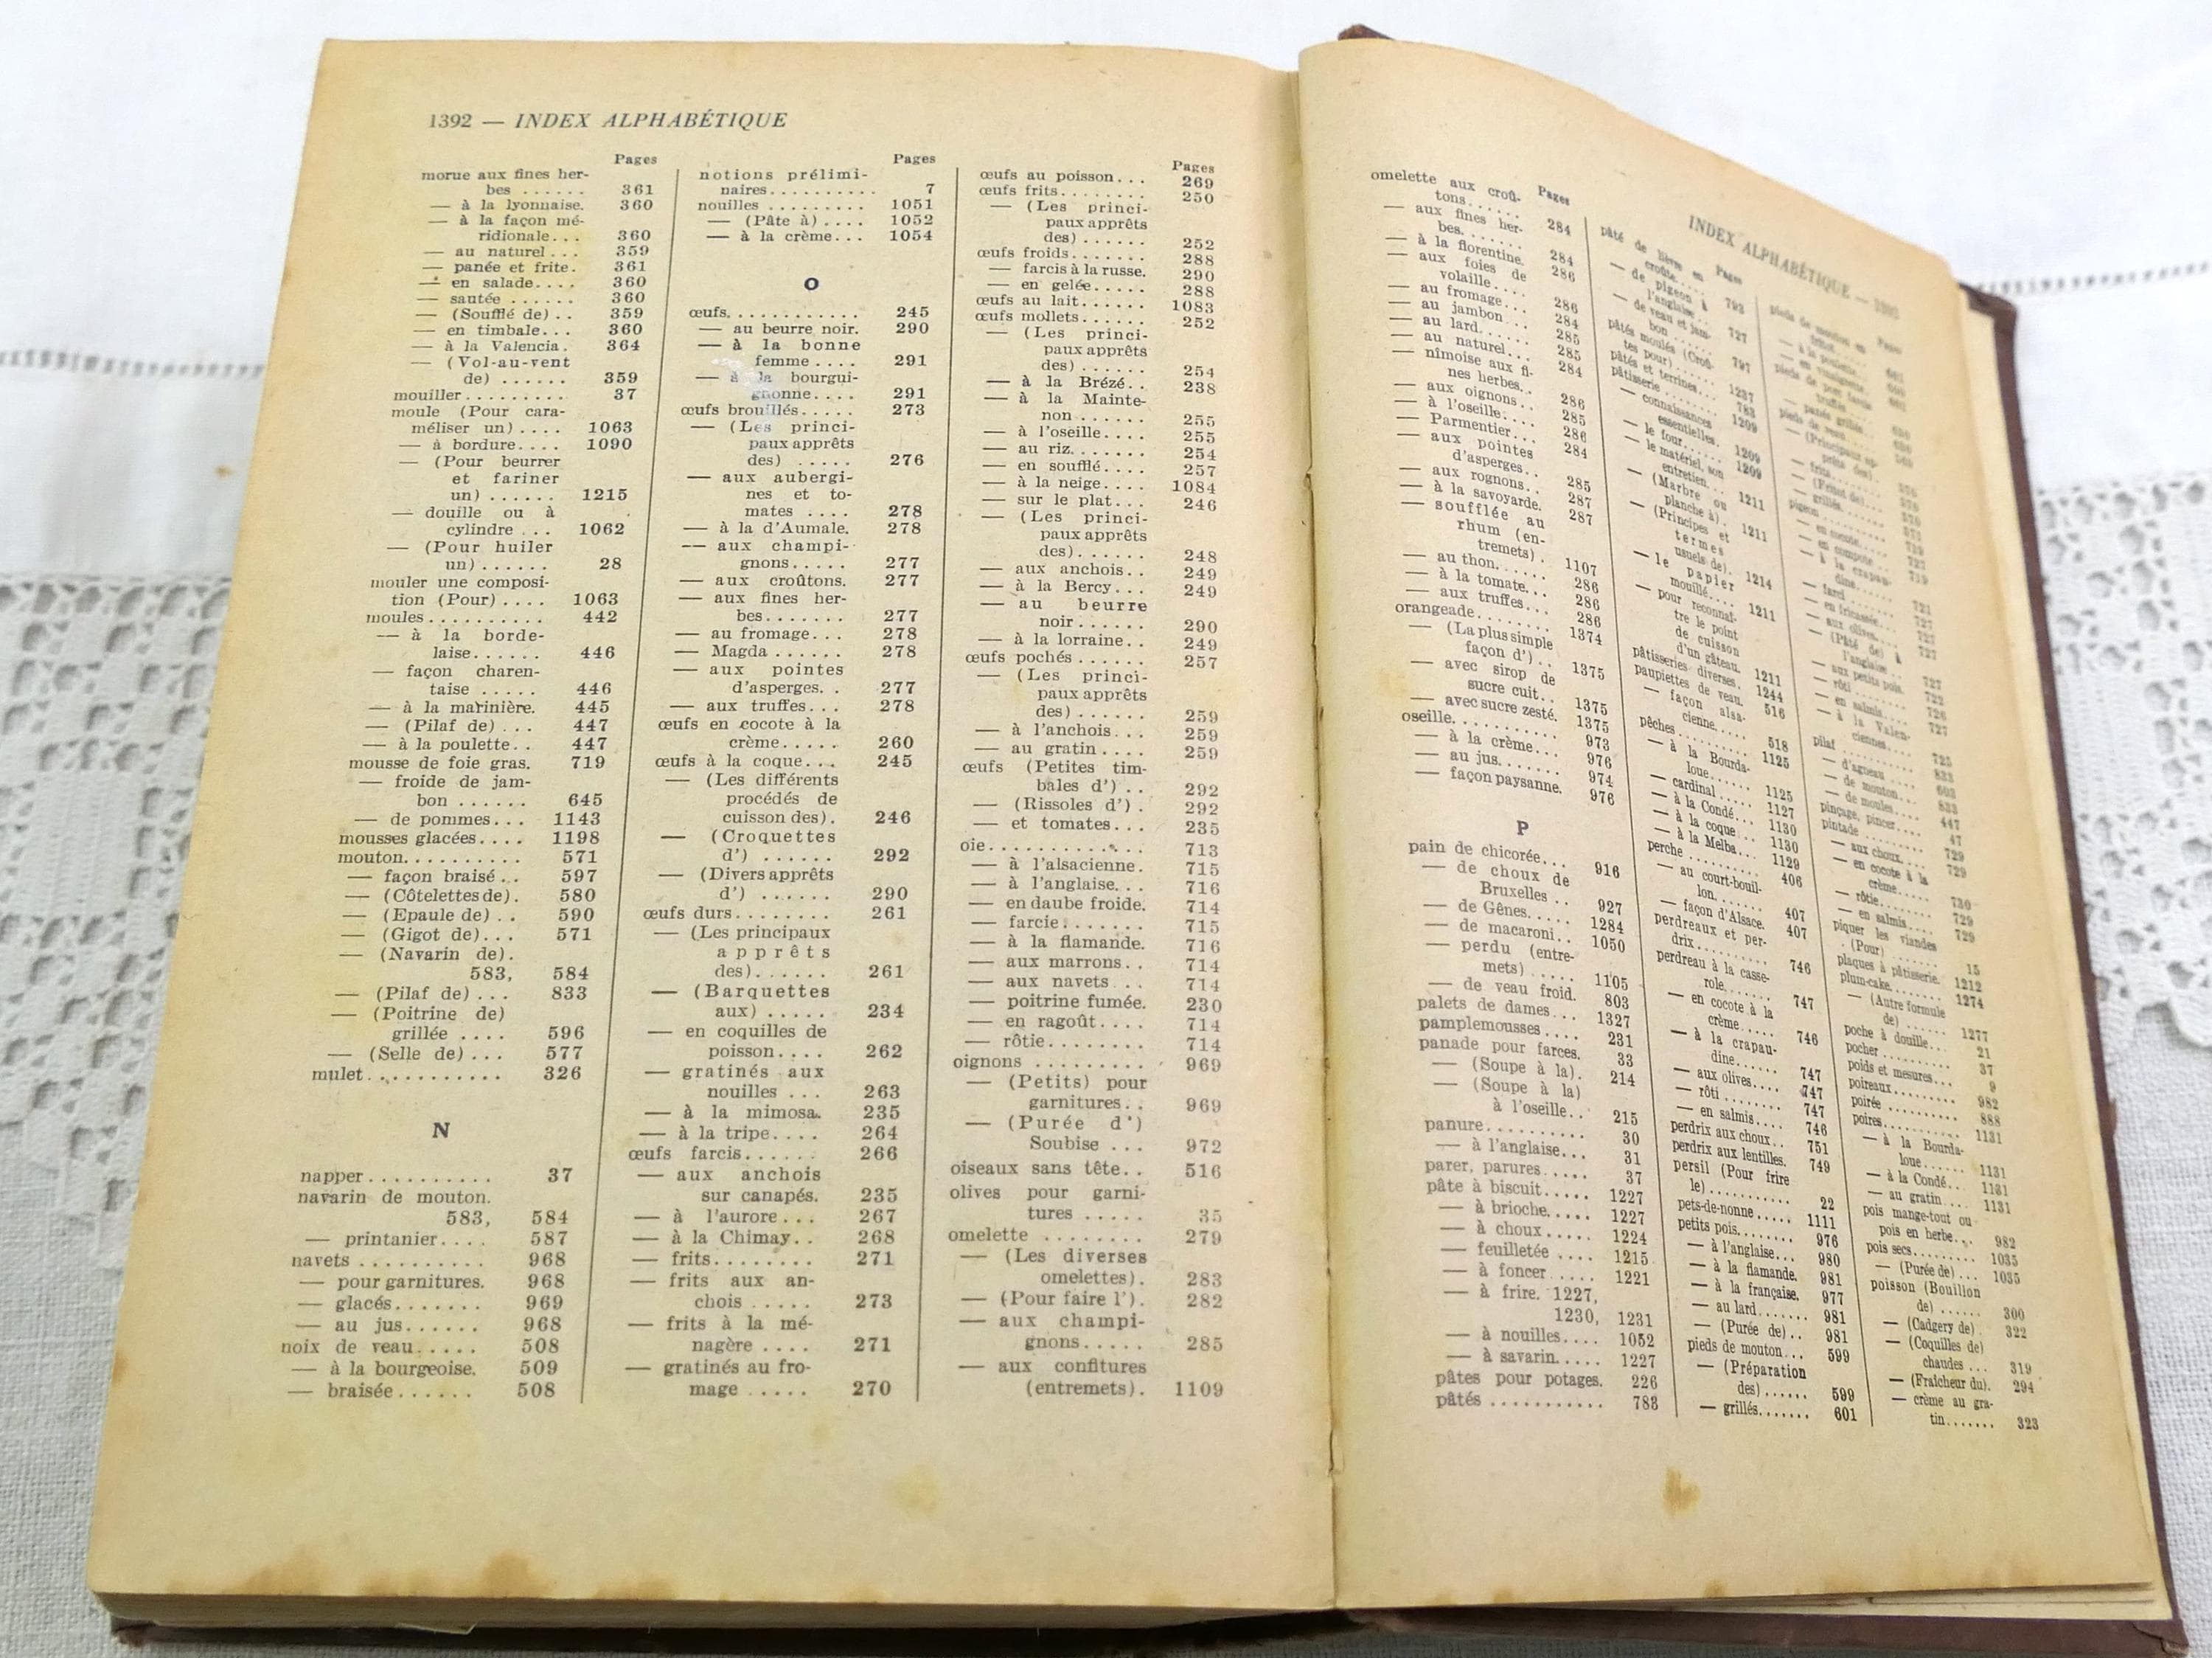 1392 — INDEX ALPHABÉTIQUE
Pages
morue aux fines her-
bes ...... 361
— à la lyonnaise. 360
— à la façon mé-
ridionale... 360
— au naturel... 359
— panée et frite. 361
— en salade.... 360
— sautée ...... 360
— (Soufflé de).. 359
— en timbale... 360
— à la Valencia. 364
— (Vol-au-vent
de) ...... 359
mouiller......... 37
moule (Pour cara-
méliser un).... 1063
— à bordure.... 1090
— (Pour beurrer
et fariner
un) ...... 1215
— douille ou à
cylindre ... 1062
— (Pour huiler
un) ...... 28
mouler une composi-
tion (Pour).... 1063
moules.......... 442
— à la borde-
laise...... 446
— façon charen-
taise ..... 446
— à la marinière. 445
— (Pilaf de) ... 447
— à la poulette.. 447
mousse de foie gras. 719
— froide de jam-
bon ...... 645
— de pommes... 1143
mousses glacées.... 1198
mouton.......... 571
— façon braisé.. 597
— (Côtelettes de). 580
— (Epaule de) .. 590
— (Gigot de)... 571
— (Navarin de).
583, 584
— (Pilaf de) ... 833
— (Poitrine de)
grillée .... 596
— (Selle de) ... 577
mulet........... 326
N
napper.......... 37
navarin de mouton.
583, 584
— printanier.... 587
navets .......... 968
— pour garnitures. 968
— glacés....... 969
— au jus...... 968
noix de veau..... 508
— à la bourgeoise. 509
— braisée...... 508
Pages
notions prélimi-
naires.......... 7
nouilles ......... 1051
— (Pâte à) .... 1052
— à la crème... 1054
O
œufs............ 245
— au beurre noir. 290
— à la bonne
femme .... 291
— à la bourgui-
gnonne.... 291
œufs brouillés..... 273
— (Les princi-
paux apprêts
des) ..... 276
— aux aubergi-
nes et to-
mates .... 278
— à la d'Aumale. 278
— aux champi-
gnons..... 277
— aux croûtons. 277
— aux fines her-
bes....... 277
— au fromage... 278
— Magda ...... 278
— aux pointes
d'asperges.. 277
— aux truffes... 278
œufs en cocote à la
crème..... 260
œufs à la coque... 245
— (Les différents
procédés de
cuisson des). 246
— (Croquettes
d') ...... 292
— (Divers apprêts
d') ...... 290
œufs durs........ 261
— (Les principaux
apprêts
des)...... 261
— (Barquettes
aux) ..... 234
— en coquilles de
poisson.... 262
— gratinés aux
nouilles ... 263
— à la mimosa. 235
— à la tripe.... 264
œufs farcis...... 266
— aux anchois
sur canapés. 235
— à l'aurore... 267
— à la Chimay.. 268
— frits........ 271
— frits aux an-
chois ..... 273
— frits à la mé-
nagère .... 271
— gratinés au fro-
mage ..... 270
Pages
œufs au poisson... 269
œufs frits........ 250
— (Les princi-
paux apprêts
des) ...... 252
œufs froids....... 288
— farcis à la russe. 290
— en gelée..... 288
œufs au lait...... 1083
œufs mollets...... 252
— (Les princi-
paux apprêts
des) ...... 254
— à la Brézé.. 238
— à la Mainte-
non ....... 255
— à l'oseille.... 255
— au riz....... 254
— en soufflé.... 257
— à la neige.... 1084
— sur le plat... 246
— (Les princi-
paux apprêts
des)...... 248
— aux anchois.. 249
— à la Bercy... 249
— au beurre
noir...... 290
— à la lorraine.. 249
œufs pochés ...... 257
— (Les princi-
paux apprêts
des) ...... 259
— à l'anchois... 259
— au gratin.... 259
œufs (Petites tim-
bales d') .. 292
— (Rissoles d') . 292
— et tomates... 235
oie.............. 713
— à l'alsacienne. 715
— à l'anglaise... 716
— en daube froide. 714
— farcie....... 715
— à la flamande. 716
— aux marrons.. 714
— aux navets... 714
— poitrine fumée. 230
— en ragoût.... 714
— rôtie........ 714
oignons ......... 969
— (Petits) pour
garnitures.. 969
— (Purée d')
Soubise ... 972
oiseaux sans tête.. 516
olives pour garni-
tures ..... 35
omelette ........ 279
— (Les diverses
omelettes). 283
— (Pour faire l'). 282
— aux champi-
gnons..... 285
— aux confitures
(entremets). 1109
INDEX ALPHABÉTIQUE
Pages
omelette aux croû-
tons...... 284
— aux fines her-
bes....... 284
— à la florentine. 286
— aux foies de
volaille.... 286
— au fromage... 284
— au jambon... 285
— au lard..... 285
— au naturel... 284
— nîmoise aux fi-
nes herbes.. 286
— aux oignons.. 285
— à l'oseille.... 286
— Parmentier... 284
— aux pointes
d'asperges.. 285
— aux rognons.. 287
— à la savoyarde. 287
— soufflée au
rhum (en-
tremets). 1107
— au thon...... 286
— à la tomate... 286
— aux truffes... 286
orangeade........ 1374
— (La plus simple
façon d').. 1375
— avec sirop de
sucre cuit.. 1375
— avec sucre zesté. 1375
oseille.......... 973
— à la crème... 976
— au jus....... 974
— façon paysanne. 976
P
pain de chicorée... 916
— de choux de
Bruxelles .. 927
— de Gênes..... 1284
— de macaroni.. 1050
— perdu (entre-
mets) ..... 1105
— de veau froid. 803
palets de dames... 1327
pamplemousses.... 231
panade pour farces. 33
— (Soupe à la). 214
— (Soupe à la)
à l'oseille.. 215
panure.......... 30
— à l'anglaise... 31
parer, parures..... 37
pâte à biscuit..... 1227
— à brioche..... 1227
— à choux..... 1224
— feuilletée .... 1215
— à foncer ..... 1221
— à frire. 1227,
1230, 1231
— à nouilles.... 1052
— à savarin..... 1227
pâtes pour potages. 226
pâtés ........... 783
Pages
pâté de lièvre en
croûte.... 793
— de pigeon à
l'anglaise.. 727
— de veau et jam-
bon ...... 797
pâtés moulés (Croû-
tes pour)..... 1237
pâtés et terrines... 783
pâtisserie ....... 1209
— connaissances
essentielles. 1209
— le four....... 1209
— le matériel, son
entretien... 1211
— (Marbre ou
planche à). 1211
— (Principes et
termes
usuels de). 1214
— le papier
mouillé.... 1211
— pour reconnaî-
tre le point
de cuisson
d'un gâteau. 1211
pâtisseries diverses. 1244
paupiettes de veau. 516
— façon alsa-
cienne..... 518
pêches.......... 1125
— à la Bourda-
loue...... 1125
— cardinal ..... 1127
— à la Condé... 1130
— à la coque ... 1130
— à la Melba... 1129
perche ......... 406
— au court-bouil-
lon....... 407
— façon d'Alsace. 407
perdreaux et per-
drix........ 746
perdreau à la casse-
role....... 747
— en cocote à la
crème..... 746
— à la crapau-
dine...... 747
— aux olives.... 747
— rôti ........ 747
— en salmis.... 746
perdrix aux choux.. 751
perdrix aux lentilles. 749
persil (Pour frire
le).......... 22
pets-de-nonne..... 1111
petits pois....... 976
— à l'anglaise... 980
— à la flamande. 981
— à la française. 977
— au lard...... 981
— (Purée de).. 981
pieds de mouton... 599
— (Préparation
des) ...... 599
— grillés....... 601
pilaf ........... 725
— d'agneau ..... 833
— de mouton... 833
— de moules.... 447
pinçage, pincer.... 47
pintade ......... 729
— aux choux.... 729
— en cocote à la
crème..... 730
— rôtie........ 729
— en salmis.... 729
piquer les viandes
(Pour) ....... 15
plaques à pâtisserie. 1212
plum-cake....... 1274
— (Autre formule
de) ...... 1277
poche à douille... 21
pocher ......... 37
poids et mesures... 9
poireaux......... 982
poirée .......... 888
poires.......... 1131
— à la Bourda-
loue...... 1131
— à la Condé... 1131
— au gratin.... 1131
pois mange-tout ou
pois en herbe... 982
pois secs......... 1035
— (Purée de)... 1035
poisson (Bouillon
de) ...... 300
— (Cadgery de) 322
— (Coquilles de)
chaudes ... 319
— (Fraîcheur du). 294
— crème au gra-
tin....... 323